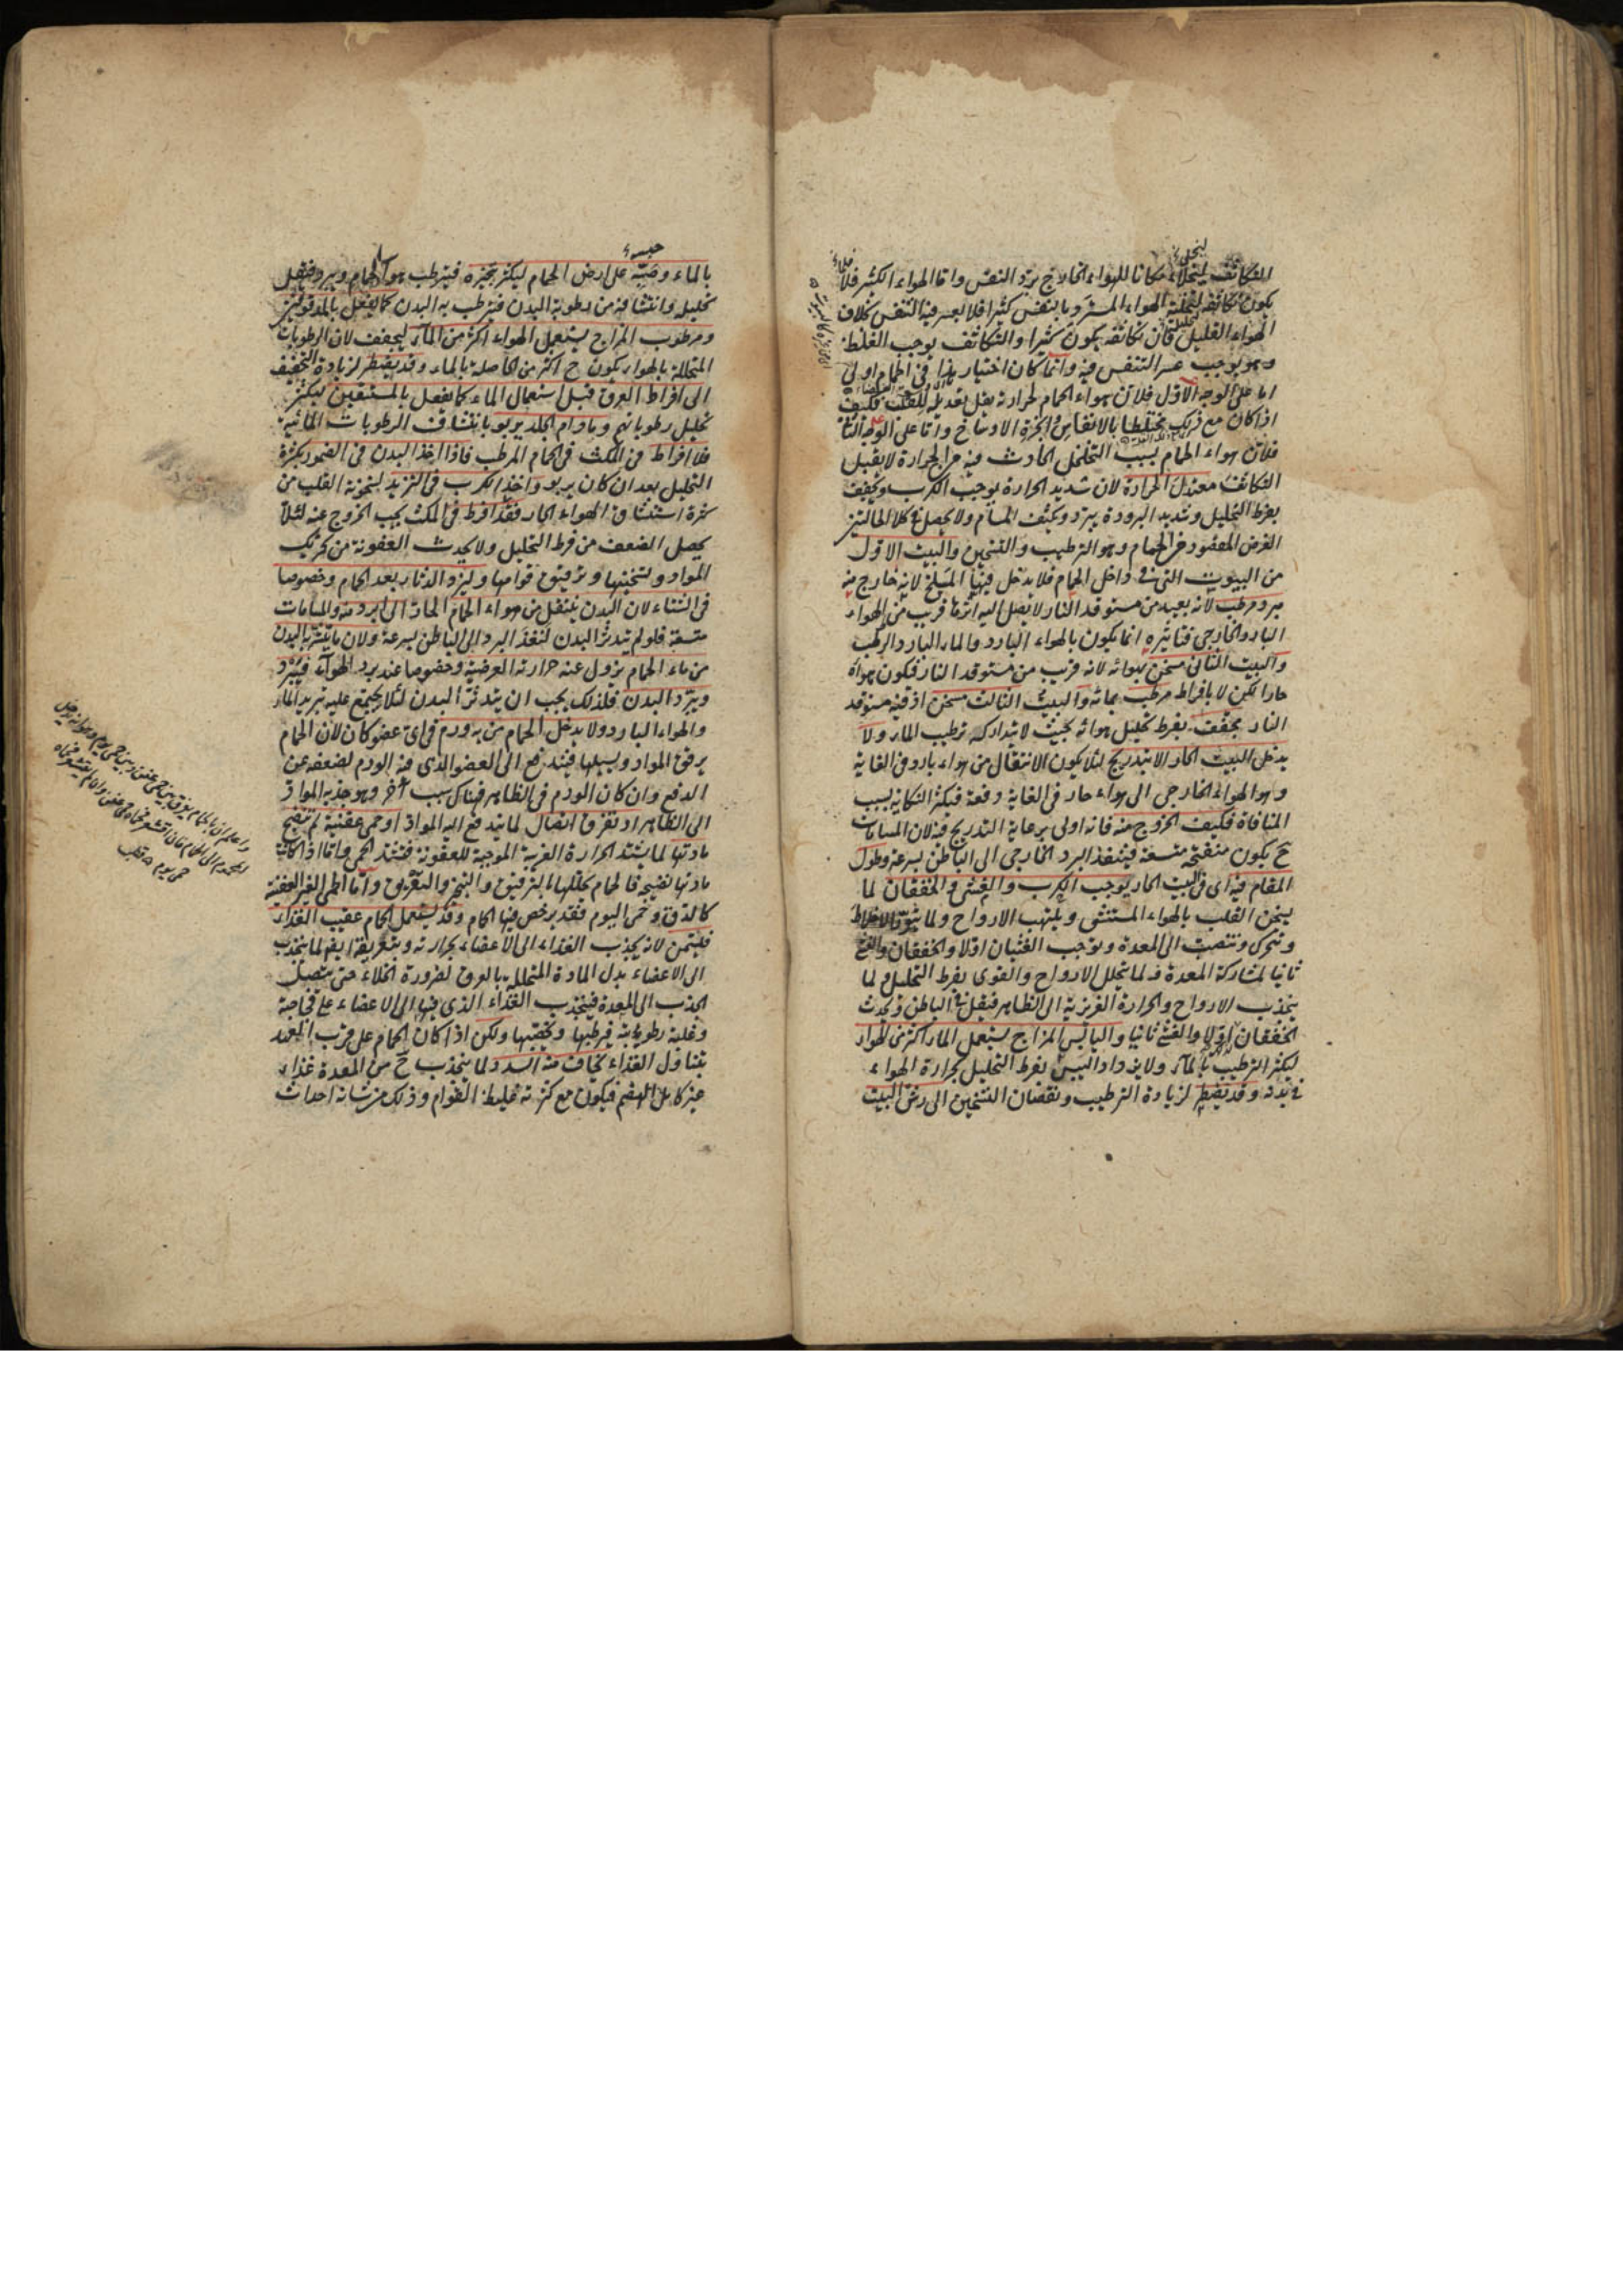 المتكاثف ليتخلى مكانا للهواء الخارج برد النفس واما الهواء الكثير فلا
يكون تكاثفه لتخلية الهواء المستروح بالنفس كثيرا فلا يعسر فيه التنفس بخلاف
الهواء القليل فان تكاثفه يكون كثيرا والتكاثف يوجب الغلظ
وهو يوجب عسر التنفس فيه وانما كان اختيار هذا في الحمام اولى
اما على الوجه الاول فلان هواء الحمام لحرارته يقل تعديله للقلب فكيف
اذا كان مع ذلك مختلطا بالانفاس وابخرة الاوساخ واما على الوجه الثا
فلان هواء الحمام بسبب التخلخل الحادث فيه من الحرارة لا يقبل
التكاثف معتدل الحرارة لان شديد الحرارة يوجب الكرب ويجفف
بفرط التحليل وشديد البرودة يبرد ويكثف المسام ولا يحصل في كلا الحالتين
الغرض المقصود من الحمام وهو الترطيب والتسخين والبيت الاول
من البيوت التي في داخل الحمام فلا يدخل فيها المسلخ لانه خارج منه
مبرد مرطب لانه بعيد من مستوقد النار لا يصل اليه اثرها قريب من الهواء
البارد الخارجي فتاثيره انما يكون بالهواء البارد والماء البارد الرطب
والبيت الثاني مسخن بهوائه لانه قريب من مستوقد النار فيكون هواه
حارا لكن لا بافراط مرطب بمائه والبيت الثالث مسخن اذ فيه مستوقد
النار مجفف بفرط تحليل هوائه بحيث لا يتداركه ترطيب الماء ولا
يدخل البيت الحار الا بتدريج لئلا يكون الانتقال من هواء بارد في الغاية
وهو الهواء الخارجي الى هواء حار في الغاية دفعة فيكثر النكاية بسبب
المنافاة فكيف الخروج منه فانه اولى برعاية التدريج فيه لان المسامات
ح يكون منفتحة متسعة فينفذ البرد الخارجي الى الباطن بسرعة وطول
المقام فيه اي في البيت الحار يوجب الكرب والغشي والخفقان لما
يسخن القلب بالهواء المستنشق ويلتهب الارواح ولما يثور الاخلاط
وتتحرك وتنصب الى المعدة ويوجب الغثيان اولا والخفقان والغشي
ثانيا لمشاركة المعدة ولما يتحلل الارواح والقوى بفرط التحليل ولما
ينجذب الارواح والحرارة الغريزية الى الظاهر فيقل في الباطن ويحدث
الخفقان اولا والغشي ثانيا واليابس المزاج يستعمل الماء اكثر من الهواء
ليكثر الترطيب بالماء ولا يزداد اليبس بفرط التحليل بحرارة الهواء
في بدنه وقد يضطر لزيادة الترطيب ونقصان التسخين الى رش البيت
بالماء وصبه على ارض الحمام ليكثر تبخيره فيترطب هواء الحمام ويبرد فيقل
تحليله وانتشافه من رطوبة البدن فيترطب به البدن كما يفعل بالمدقوقين
ومرطوب المزاج يستعمل الهواء اكثر من الماء ليجفف لان الرطوبات
المتحللة بالهواء يكون ح اكثر من الحاصلة بالماء وقد يضطر لزيادة التجفيف
الى افراط العرق قبل استعمال الماء كما يفعل بالمستسقين ليكثر
تحليل رطوباتهم ومادام الجلد يربو بانتشاف الرطوبات المائية
فلا افراط في المكث في الحمام المرطب فاذا اخذ البدن في الضمور بكثرة
التحليل بعد ان كان يربو واخذ الكرب في التزيد لسخونة القلب من
كثرة استنشاق الهواء الحار فقد افرط في المكث يجب الخروج عنه لئلا
يحصل الضعف من فرط التحليل ولا يحدث العفونة من تحريك
المواد وتسخينها وترقيق قوامها وليزد الدثار بعد الحمام وخصوصا
في الشتاء لان البدن ينتقل من هواء الحمام الحار الى ابرد منه والمسامات
متسعة فلو لم يتدثر البدن لنفذ البرد الى الباطن بسرعة ولان ما يتشربه البدن
من ماء الحمام يزول عنه حرارته العرضية وخصوصا عند برد الهواء فيبرد
ويبرد البدن فلذلك يجب ان يتدثر البدن لئلا يجتمع عليه تبريد الماء
والهواء البارد ولا يدخل الحمام من به ورم في اي عضو كان لان الحمام
يرقق المواد ويسيلها فيندفع الى العضو الذي فيه الورم لضعفه عن
الدفع وان كان الورم في الظاهر فهناك سبب آخر وهو جذبه المواد
الى الظاهر او تفرق اتصال لما يندفع اليه المواد او حمى عفنية لم تنضج
مادتها لما يشتد الحرارة الغريبة الموجبة للعفونة فيشتد الحمى واما اذا كانت
مادتها نضيجة فالحمام يحللها بالترقيق والتبخير والتعريق واما الحمى الغير العفنية
كالدق وحمى اليوم فقد يرخص فيها الحمام وقد يستعمل الحمام عقيب الغذاء
فيسمن لانه يجذب الغذاء الى الاعضاء بحرارته وبتعريقه ايضا لما ينجذب
الى الاعضاء بدل المادة المتحللة بالعرق لضرورة الخلاء حتى يتصل
الجذب الى المعدة فينجذب الغذاء الذي فيها الى الاعضاء على فجاجته
وغلبة رطوباته فيرطبها ويخصبها ولكن اذا كان الحمام على قرب العهد
بتناول الغذاء يخاف منه السدد لما ينجذب ح من المعدة غذاء
غير كامل الهضم فيكون مع كثرته غليظ القوام وذلك من شانه احداث
واعلم ان بالحمام يفرق بين حمى عفن وبين حمى يوم
حمى يوم قطب